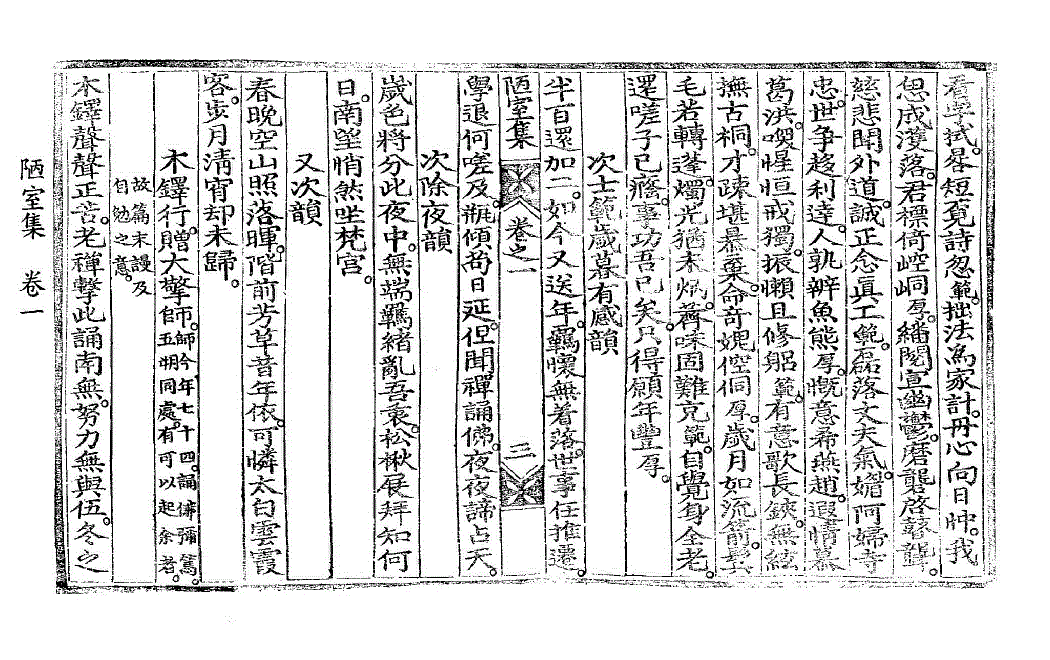 看學拭。晷短覔詩忽。範。拙法爲家計。丹心向日忡。我
思成濩落。君標倚崆峒。厚。繙閱宣幽鬱。磨礱啓瞽聾。
慈悲聞外道。誠正念眞工。範。磊落文夫氣。媚阿婦寺
忠。世爭趍利達。人孰辨魚熊。厚。慨意希燕趙。遐情慕
葛洪。喫惺恒戒獨。振懶且修躬。範。有意歌長鋏。無絃
撫古桐。才疎堪暴棄。命奇娓倥侗。厚。歲月如流箭。髩
毛若轉蓬。燭光猶未燼。薺味固難充。範。自覺身全老。
還嗟子已癃。事功吾已矣。只得願年豐。厚。
次士範歲暮有感韻
半百還加二。如今又送年。羈懷無着落。世事任推遷。
陋室集 卷之一 三
學退何嗟及。瓶傾尙日延。但聞禪誦佛。夜夜諦占天。
次除夜韻
歲色將分此夜中。無端羈緖亂吾衷。松楸展拜知何
日。南望悄然坐梵宮。
又次韻
春晚空山照落暉。階前芳草昔年依。可憐太白雲霞
客。歲月淸宵却未歸。
木鐸行。贈大擎師。師今年七十四。誦佛彌篤。
自五朔同處。有可以起余者。
故篇末謾及
自勉之意。
木鐸聲聲正苦。老禪擊此誦南無。努力無與伍。冬之
陋室集 卷一